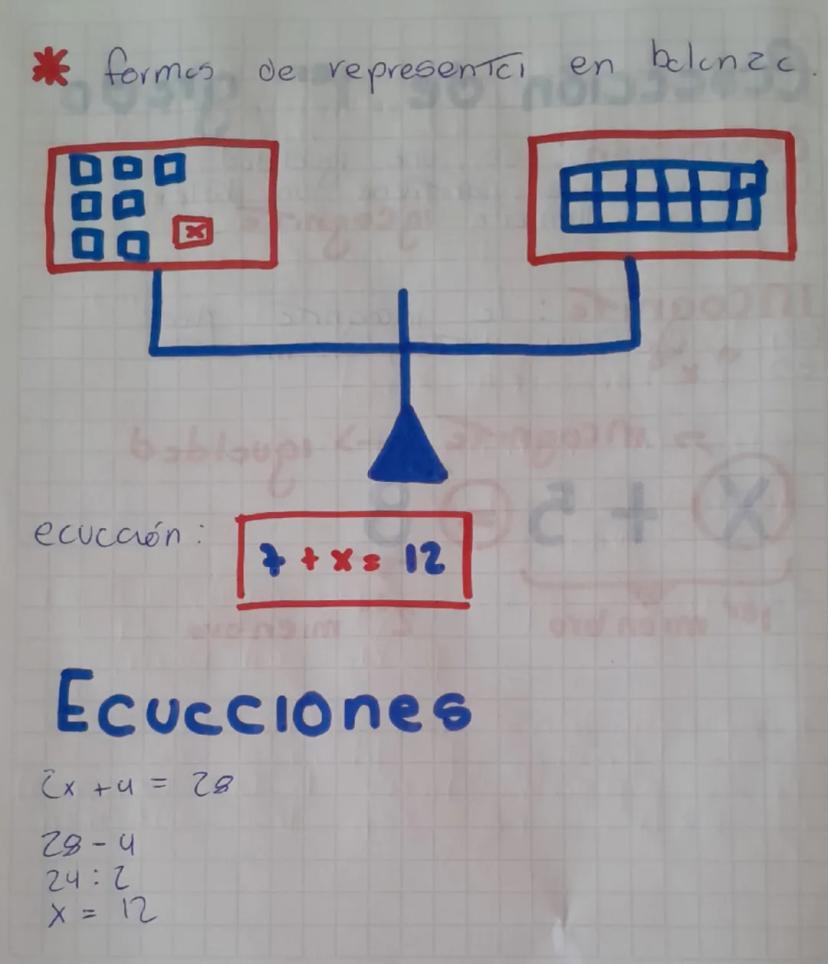 * formas de representai en balanza.
x
ecuación:
7 + x = 12
Ecuaciones
2x + 4 = 28
28 - 4
24 : 2
x = 12